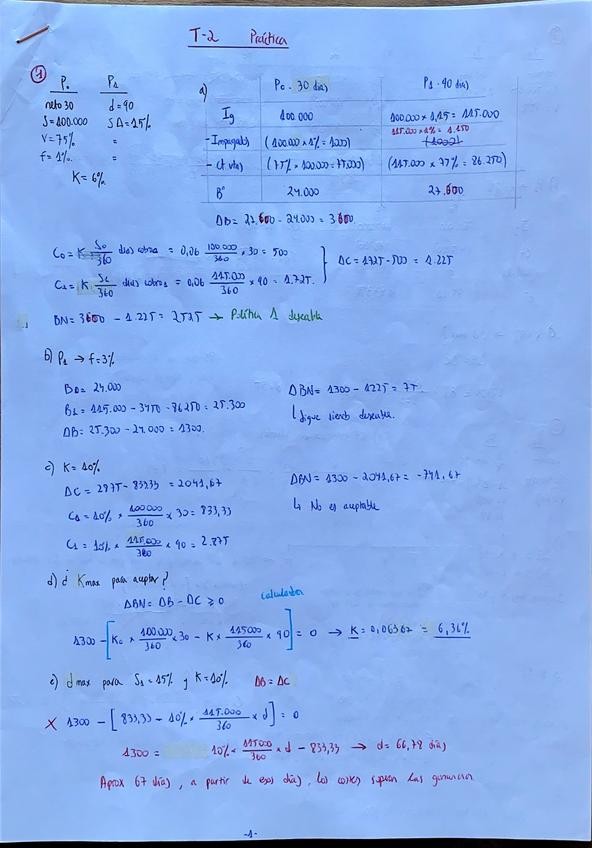 T-2 Práctica
1
P₀ P₁
neto 30 d=90
S=100.000 SΔ=15%
V=75% =
f=1%. =
K=6%
a)
P₀ - 30 días P₁ - 90 días
Ig 100 000 100.000 x 1,15 = 115.000
- Impagados (100.000 x 1% = 1000) 115.000 x 1% = 1.150
- Ct. vtas (75% x 100.000 = 75.000) (115.000 x 75% = 86.250)
Bº 24.000 27.600
ΔB = 27.600 - 24.000 = 3600
C₀ = K S₀/360 días cobro₀ = 0,06 100.000/360 x 30 = 500
C₁ = K S₁/360 días cobro₁ = 0,06 115.000/360 x 90 = 1.725.
ΔC = 1725 - 500 = 1.225
BN = 3600 - 1.225 = 2525 → Política 1 deseable
b) P₁ → f=3%
B₀ = 24.000
B₁ = 115.000 - 3450 - 86250 = 25.300
ΔB = 25.300 - 24.000 = 1300.
ΔBN = 1300 - 1225 = 75
↳ Sigue siendo deseable.
c) K = 10%
ΔC = 2875 - 833,33 = 2041,67
C₀ = 10% x 100000/360 x 30 = 833,33
C₁ = 10% x 115.000/360 x 90 = 2.875
ΔBN = 1300 - 2041,67 = -741,67
↳ No es aceptable
d) ¿ Kmax para aceptar?
ΔBN = ΔB - ΔC ≥ 0
calculadora
1300 - [K x 100.000/360 x 30 - K x 115000/360 x 90] = 0 → K = 0,06367 = 6,36%
e) d max para S₁ = 15% y K = 10% ΔB = ΔC
X 1300 - [833,33 - 10% x 115.000/360 x d] = 0
1300 = 10% x 115000/360 x d - 833,33 → d = 66,78 días
Aprox 67 días, a partir de esos días, los costes superan las ganancias
-1-